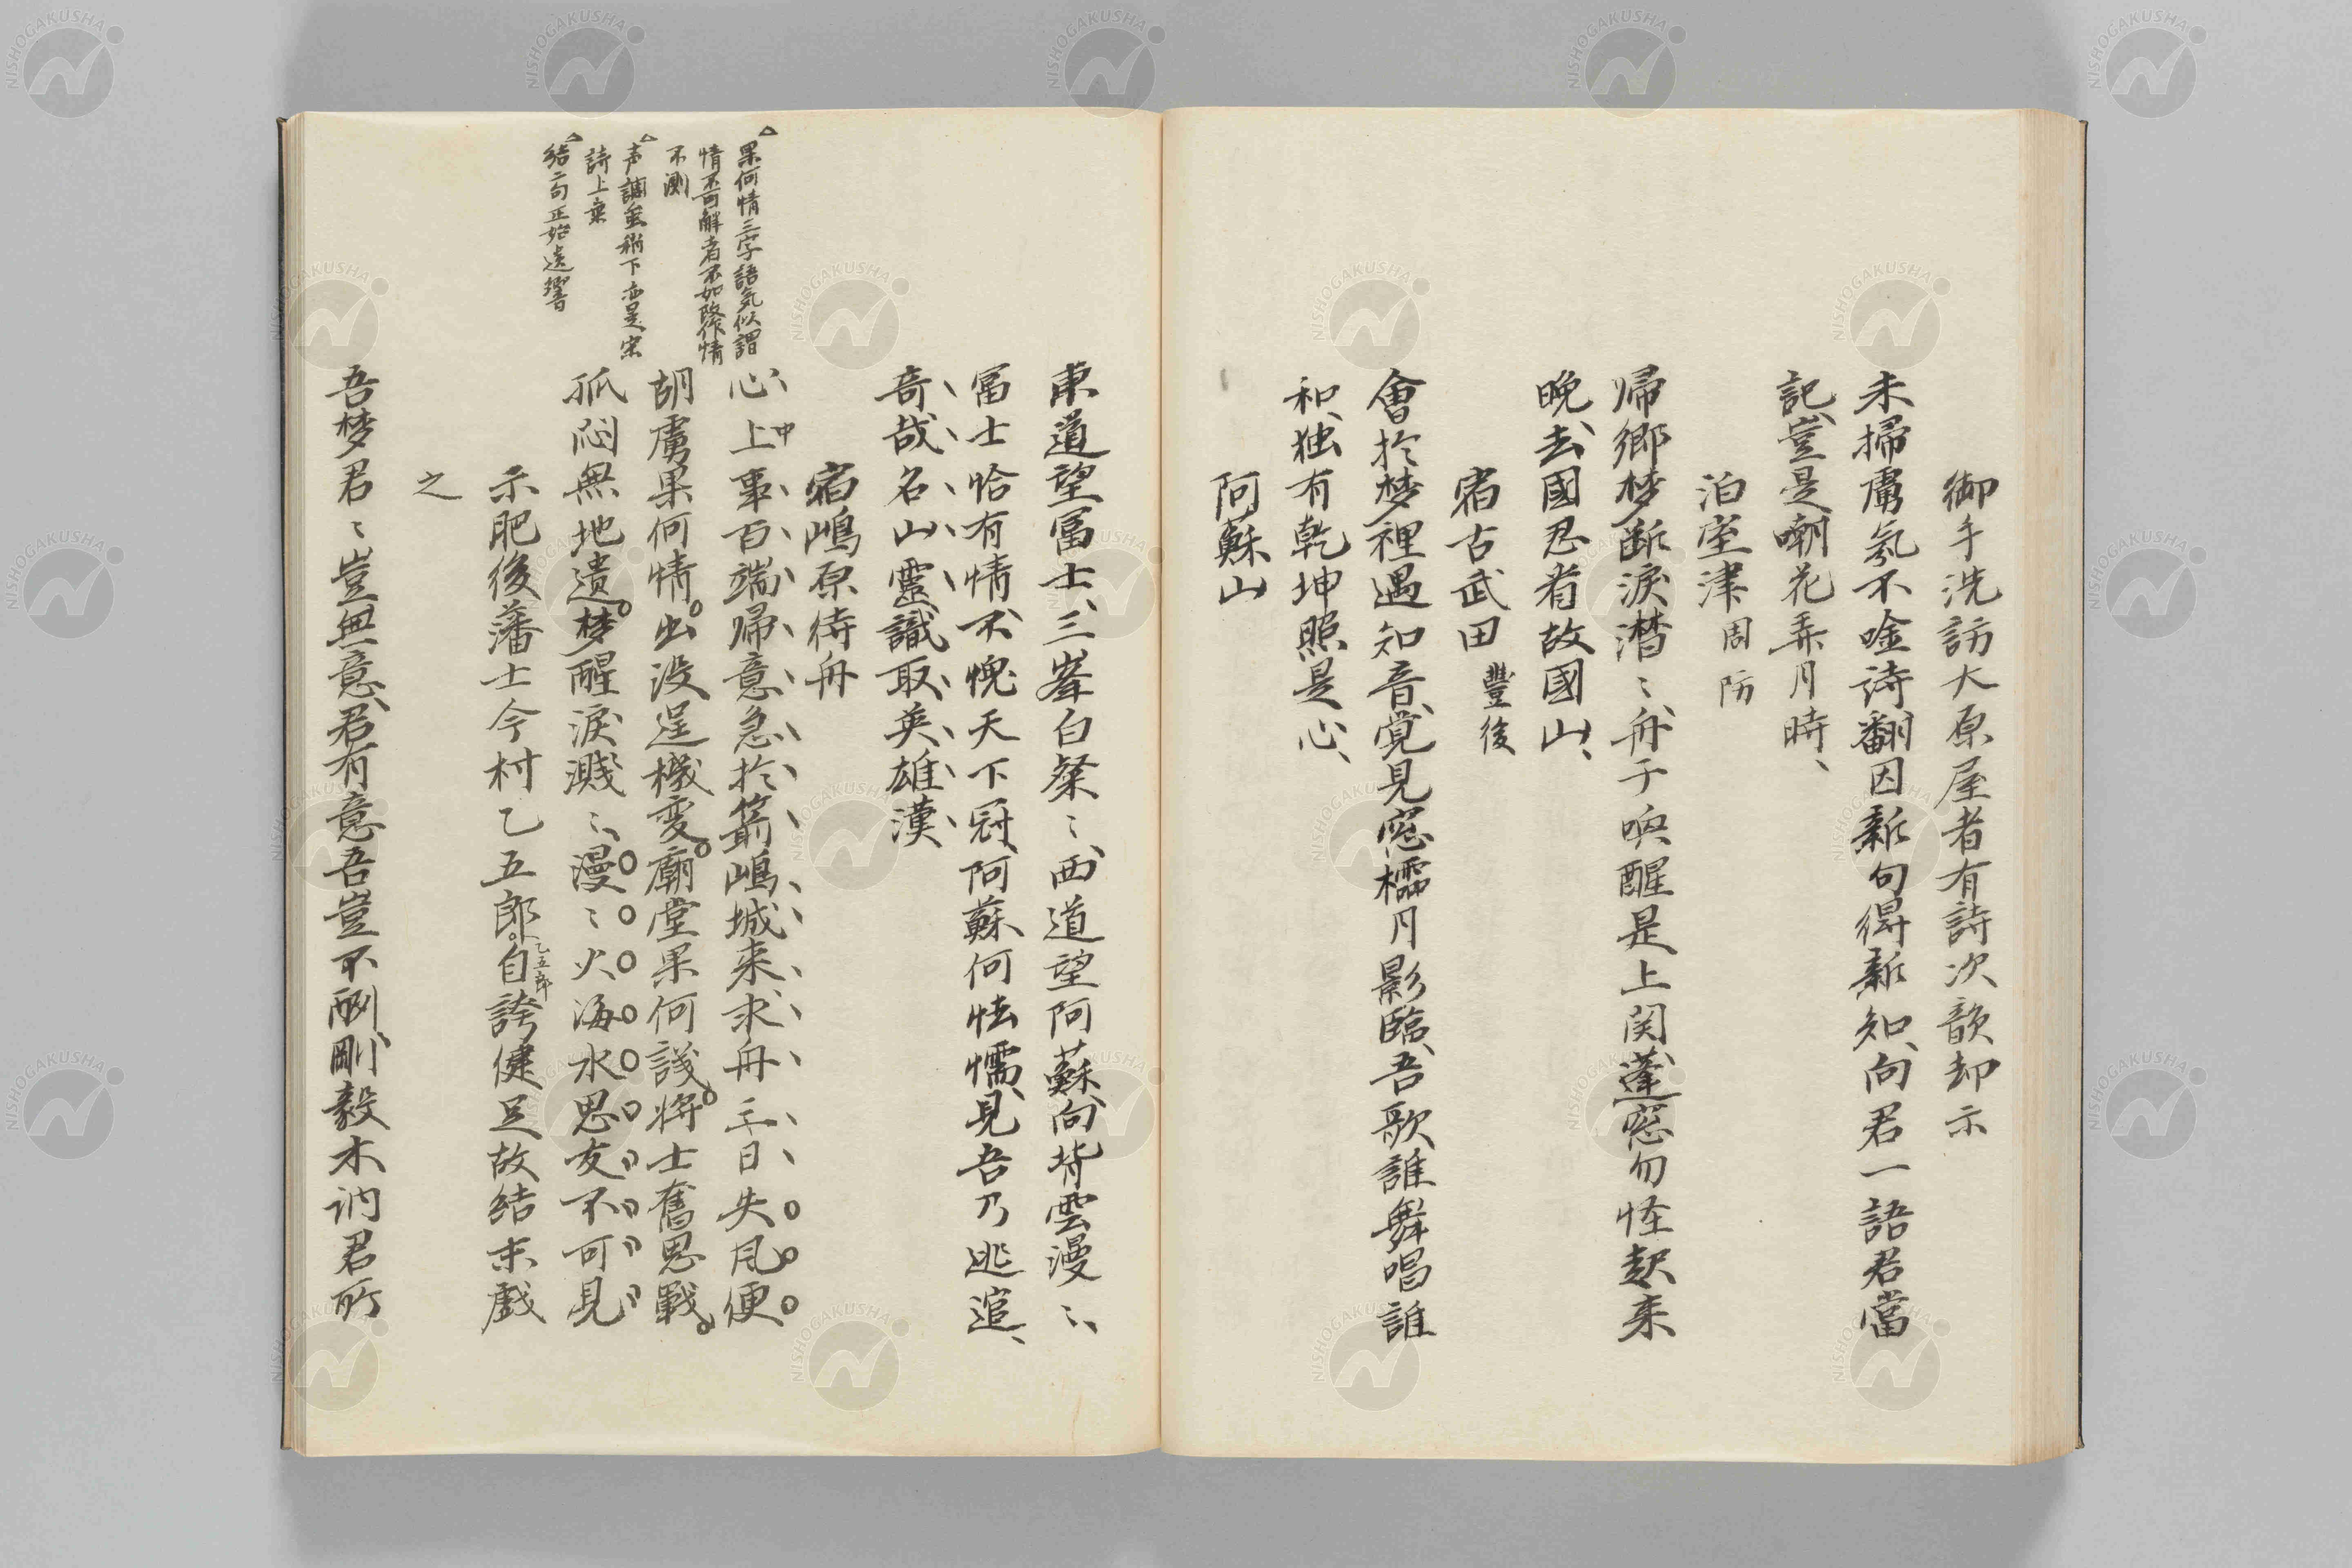 御手洗訪大原屋者有詩次韻却示
未掃虜氛不唫詩翻因新句得新知、向君一語君當
記、豈是嘲花弄月時、
泊室津周防
帰郷梦断淚潸〻、舟子喚醒是上関蓬窓勿怪起来
晩、去國忍看故國山、
宿古武田豐後
會於梦裡遇知音、覚見窓櫺月影臨、吾歌誰舞唱誰
和、独有乾坤照是心、
阿蘇山
東道望冨士、三峯白粲〻、西道望阿蘇、向背雲漫〻、
冨士恰有情不愧天下冠、阿蘇何怯懦、見吾乃逃逭、
奇哉名山靈識取英雄漢
宿嶋原待舟
心上事百端帰意急於箭嶋城来求舟三日失風便
中
胡虜果何情出没逞機変廟堂果何議将士奮思戰
孤悶無地遣梦醒淚濺〻、漫〻火海水思友不可見
示肥後藩士今村乙五郎自誇健足故結末戲
乙五郎
之
吾梦君〻豈無意、君有意吾豈不酬、剛毅木訥君所
果何情三字語気似謂
情不可解者不如改作情
不測
声調虽稍下亦是宋
詩上乗
結二句正始遺響
NISHOGAKUSHA